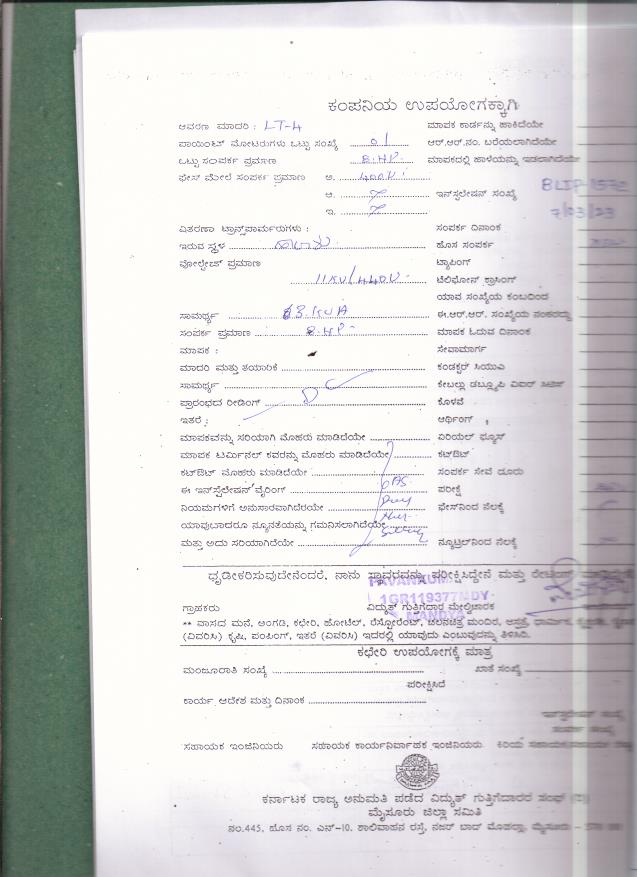 ಕಂಪನಿಯ ಉಪಯೋಗಕ್ಕಾಗಿ
ಆವರಣ ಮಾದರಿ : LT-4 ಮಾಪಕ ಕಾರ್ಡನ್ನು ಹಾಕಿದೆಯೇ
ಪಾಯಿಂಟ್ ಮೋಟರುಗಳು ಒಟ್ಟು ಸಂಖ್ಯೆ 01 ಆರ್.ಆರ್.ನಂ. ಬರೆಯಲಾಗಿದೆಯೇ
ಒಟ್ಟು ಸಂಪರ್ಕ ಪ್ರಮಾಣ 8.HP. ಮಾಪಕದಲ್ಲಿ ಹಾಳೆಯನ್ನು ಇಡಲಾಗಿದೆಯೇ
ಫೇಸ್ ಮೇಲೆ ಸಂಪರ್ಕ ಪ್ರಮಾಣ ಅ. 400V
ಆ. ಇನ್‌ಸ್ಟಲೇಷನ್ ಸಂಖ್ಯೆ
ಇ. 7/03/23
ವಿತರಣಾ ಟ್ರಾನ್ಸ್‌ಫಾರ್ಮರುಗಳು : ಸಂಪರ್ಕ ದಿನಾಂಕ
ಇರುವ ಸ್ಥಳ ಹೊಸ ಸಂಪರ್ಕ
ವೋಲ್ಟೇಜ್ ಪ್ರಮಾಣ ಟ್ಯಾಪಿಂಗ್
11KV/440V ಟೆಲಿಫೋನ್ ಕ್ರಾಸಿಂಗ್
ಯಾವ ಸಂಖ್ಯೆಯ ಕಂಬದಿಂದ
ಸಾಮರ್ಥ್ಯ 63.KVA ಈ.ಆರ್.ಆರ್. ಸಂಖ್ಯೆಯ ನಂತರದ್ದು
ಸಂಪರ್ಕ ಪ್ರಮಾಣ 8.HP ಮಾಪಕ ಓದುವ ದಿನಾಂಕ
ಮಾಪಕ : ಸೇವಾಮಾರ್ಗ
ಮಾದರಿ ಮತ್ತು ತಯಾರಿಕೆ ಕಂಡಕ್ಟರ್ ಸಿಯುಎ
ಸಾಮರ್ಥ್ಯ ಕೇಬಲ್ಲು ಡಬ್ಲ್ಯೂಪಿ
ಪ್ರಾರಂಭದ ರೀಡಿಂಗ್ DC ಕೊಳವೆ
ಇತರೆ : ಆರ್ಥಿಂಗ್
ಮಾಪಕವನ್ನು ಸರಿಯಾಗಿ ಮೊಹರು ಮಾಡಿದೆಯೇ ಏರಿಯಲ್ ಫ್ಯೂಸ್
ಮಾಪಕ ಟರ್ಮಿನಲ್ ಕವರನ್ನು ಮೊಹರು ಮಾಡಿದೆಯೇ ಕಟ್‌ಔಟ್
ಕಟ್‌ಔಟ್ ಮೊಹರು ಮಾಡಿದೆಯೇ ಸಂಪರ್ಕ ಸೇವೆ ದೂರು
ಈ ಇನ್‌ಸ್ಟಲೇಷನ್ ವೈರಿಂಗ್ ಪರೀಕ್ಷೆ
ನಿಯಮಗಳಿಗೆ ಅನುಸಾರವಾಗಿದೆಯೇ ಫೇಸ್‌ನಿಂದ ನೆಲಕ್ಕೆ
ಯಾವುಬಾದರೂ ನ್ಯೂನತೆಯನ್ನು ಗಮನಿಸಲಾಗಿದೆಯೇ
ಮತ್ತು ಅದು ಸರಿಯಾಗಿದೆಯೇ ನ್ಯೂಟ್ರಲ್‌ನಿಂದ ನೆಲಕ್ಕೆ
ಧೃಢೀಕರಿಸುವುದೇನೆಂದರೆ, ನಾನು ಸ್ಥಾವರವನ್ನು ಪರೀಕ್ಷಿಸಿದ್ದೇನೆ ಮತ್ತು
1GR119377MDY
ಗ್ರಾಹಕರು ವಿದ್ಯುತ್ ಗುತ್ತಿಗೆದಾರ ಮೇಲ್ವಿಚಾರಕ
MANDYA
** ವಾಸದ ಮನೆ, ಅಂಗಡಿ, ಕಛೇರಿ, ಹೋಟೆಲ್, ರೆಸ್ಟೋರೆಂಟ್, ಚಲನಚಿತ್ರ ಮಂದಿರ, ಆಸ್ಪತ್ರೆ, ಧಾರ್ಮಿಕ,
(ವಿವರಿಸಿ) ಕೃಷಿ, ಪಂಪಿಂಗ್, ಇತರೆ (ವಿವರಿಸಿ) ಇದರಲ್ಲಿ ಯಾವುದು ಎಂಬುವುದನ್ನು ತಿಳಿಸಿರಿ.
ಕಛೇರಿ ಉಪಯೋಗಕ್ಕೆ ಮಾತ್ರ
ಮಂಜೂರಾತಿ ಸಂಖ್ಯೆ ಖಾತೆ ಸಂಖ್ಯೆ
ಪರೀಕ್ಷಿಸಿದೆ
ಕಾರ್ಯ ಆದೇಶ ಮತ್ತು ದಿನಾಂಕ
ಸಹಾಯಕ ಇಂಜಿನಿಯರು ಸಹಾಯಕ ಕಾರ್ಯನಿರ್ವಾಹಕ ಇಂಜಿನಿಯರು ಕಿರಿಯ
ಕರ್ನಾಟಕ ರಾಜ್ಯ ಅನುಮತಿ ಪಡೆದ ವಿದ್ಯುತ್ ಗುತ್ತಿಗೆದಾರರ ಸಂಘ
ಮೈಸೂರು ಜಿಲ್ಲಾ ಸಮಿತಿ
ನಂ.445, ಹೊಸ ನಂ. ಎನ್-10, ಶಾಲಿವಾಹನ ರಸ್ತೆ, ನಜರ್ ಬಾದ್ ಮೊಹಲ್ಲಾ, ಮೈಸೂರು